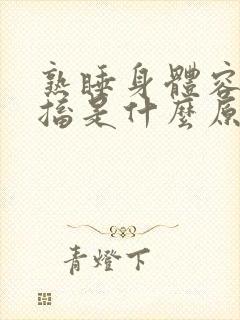 熟睡身體容
搐是什麼原
青燈下